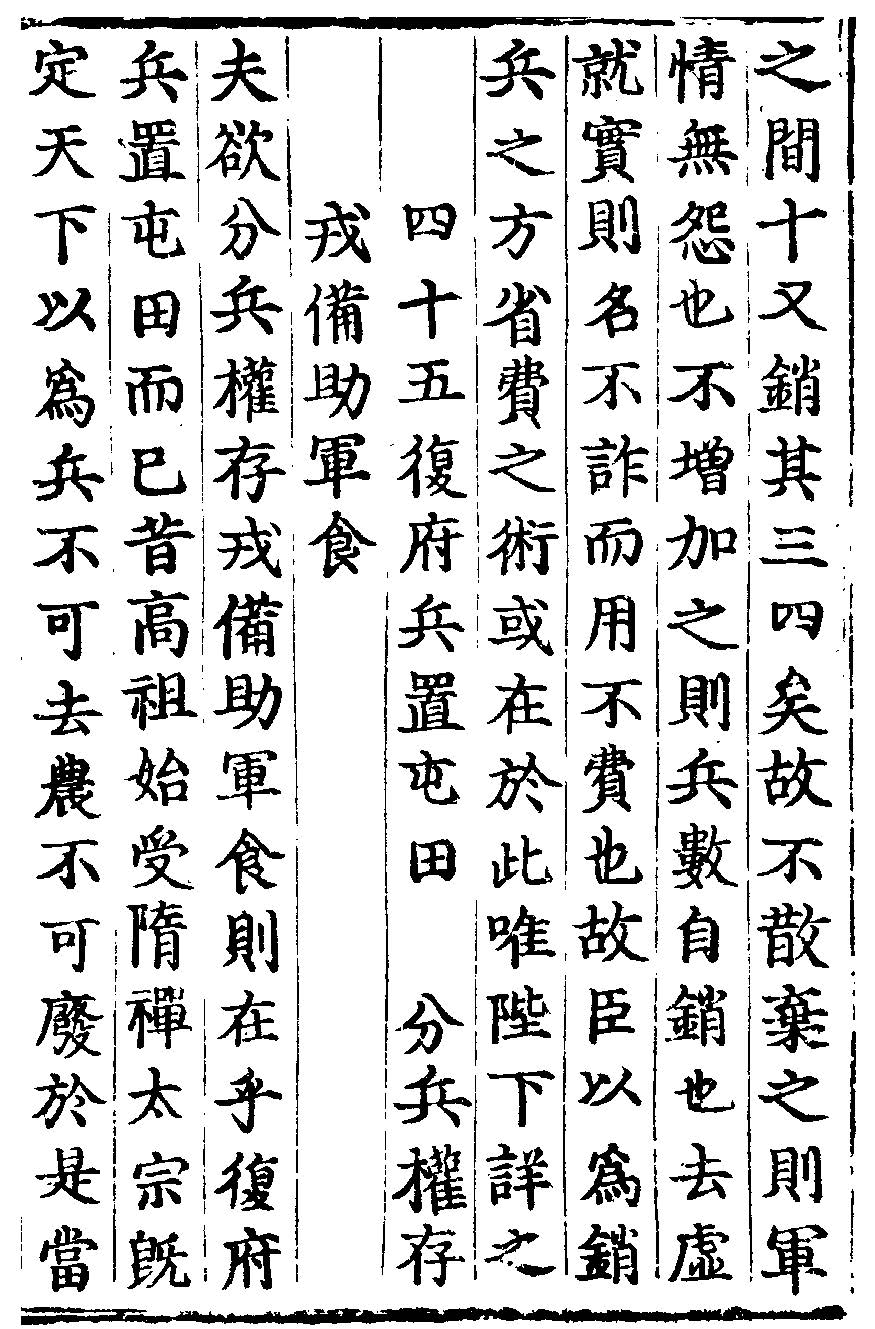 之間十又銷其三四矣故不散棄之則軍
情無怨也不增加之則兵數自銷也去虛
就實則名不詐而用不費也故臣以爲銷
兵之方省費之術或在於此唯陛下詳之
四十五復府兵置屯田　分兵權存
戎備助軍食
夫欲分兵權存戎備助軍食則在乎復府
兵置屯田而已昔高祖始受隋禪太宗旣
定天下以爲兵不可去農不可廢於是當